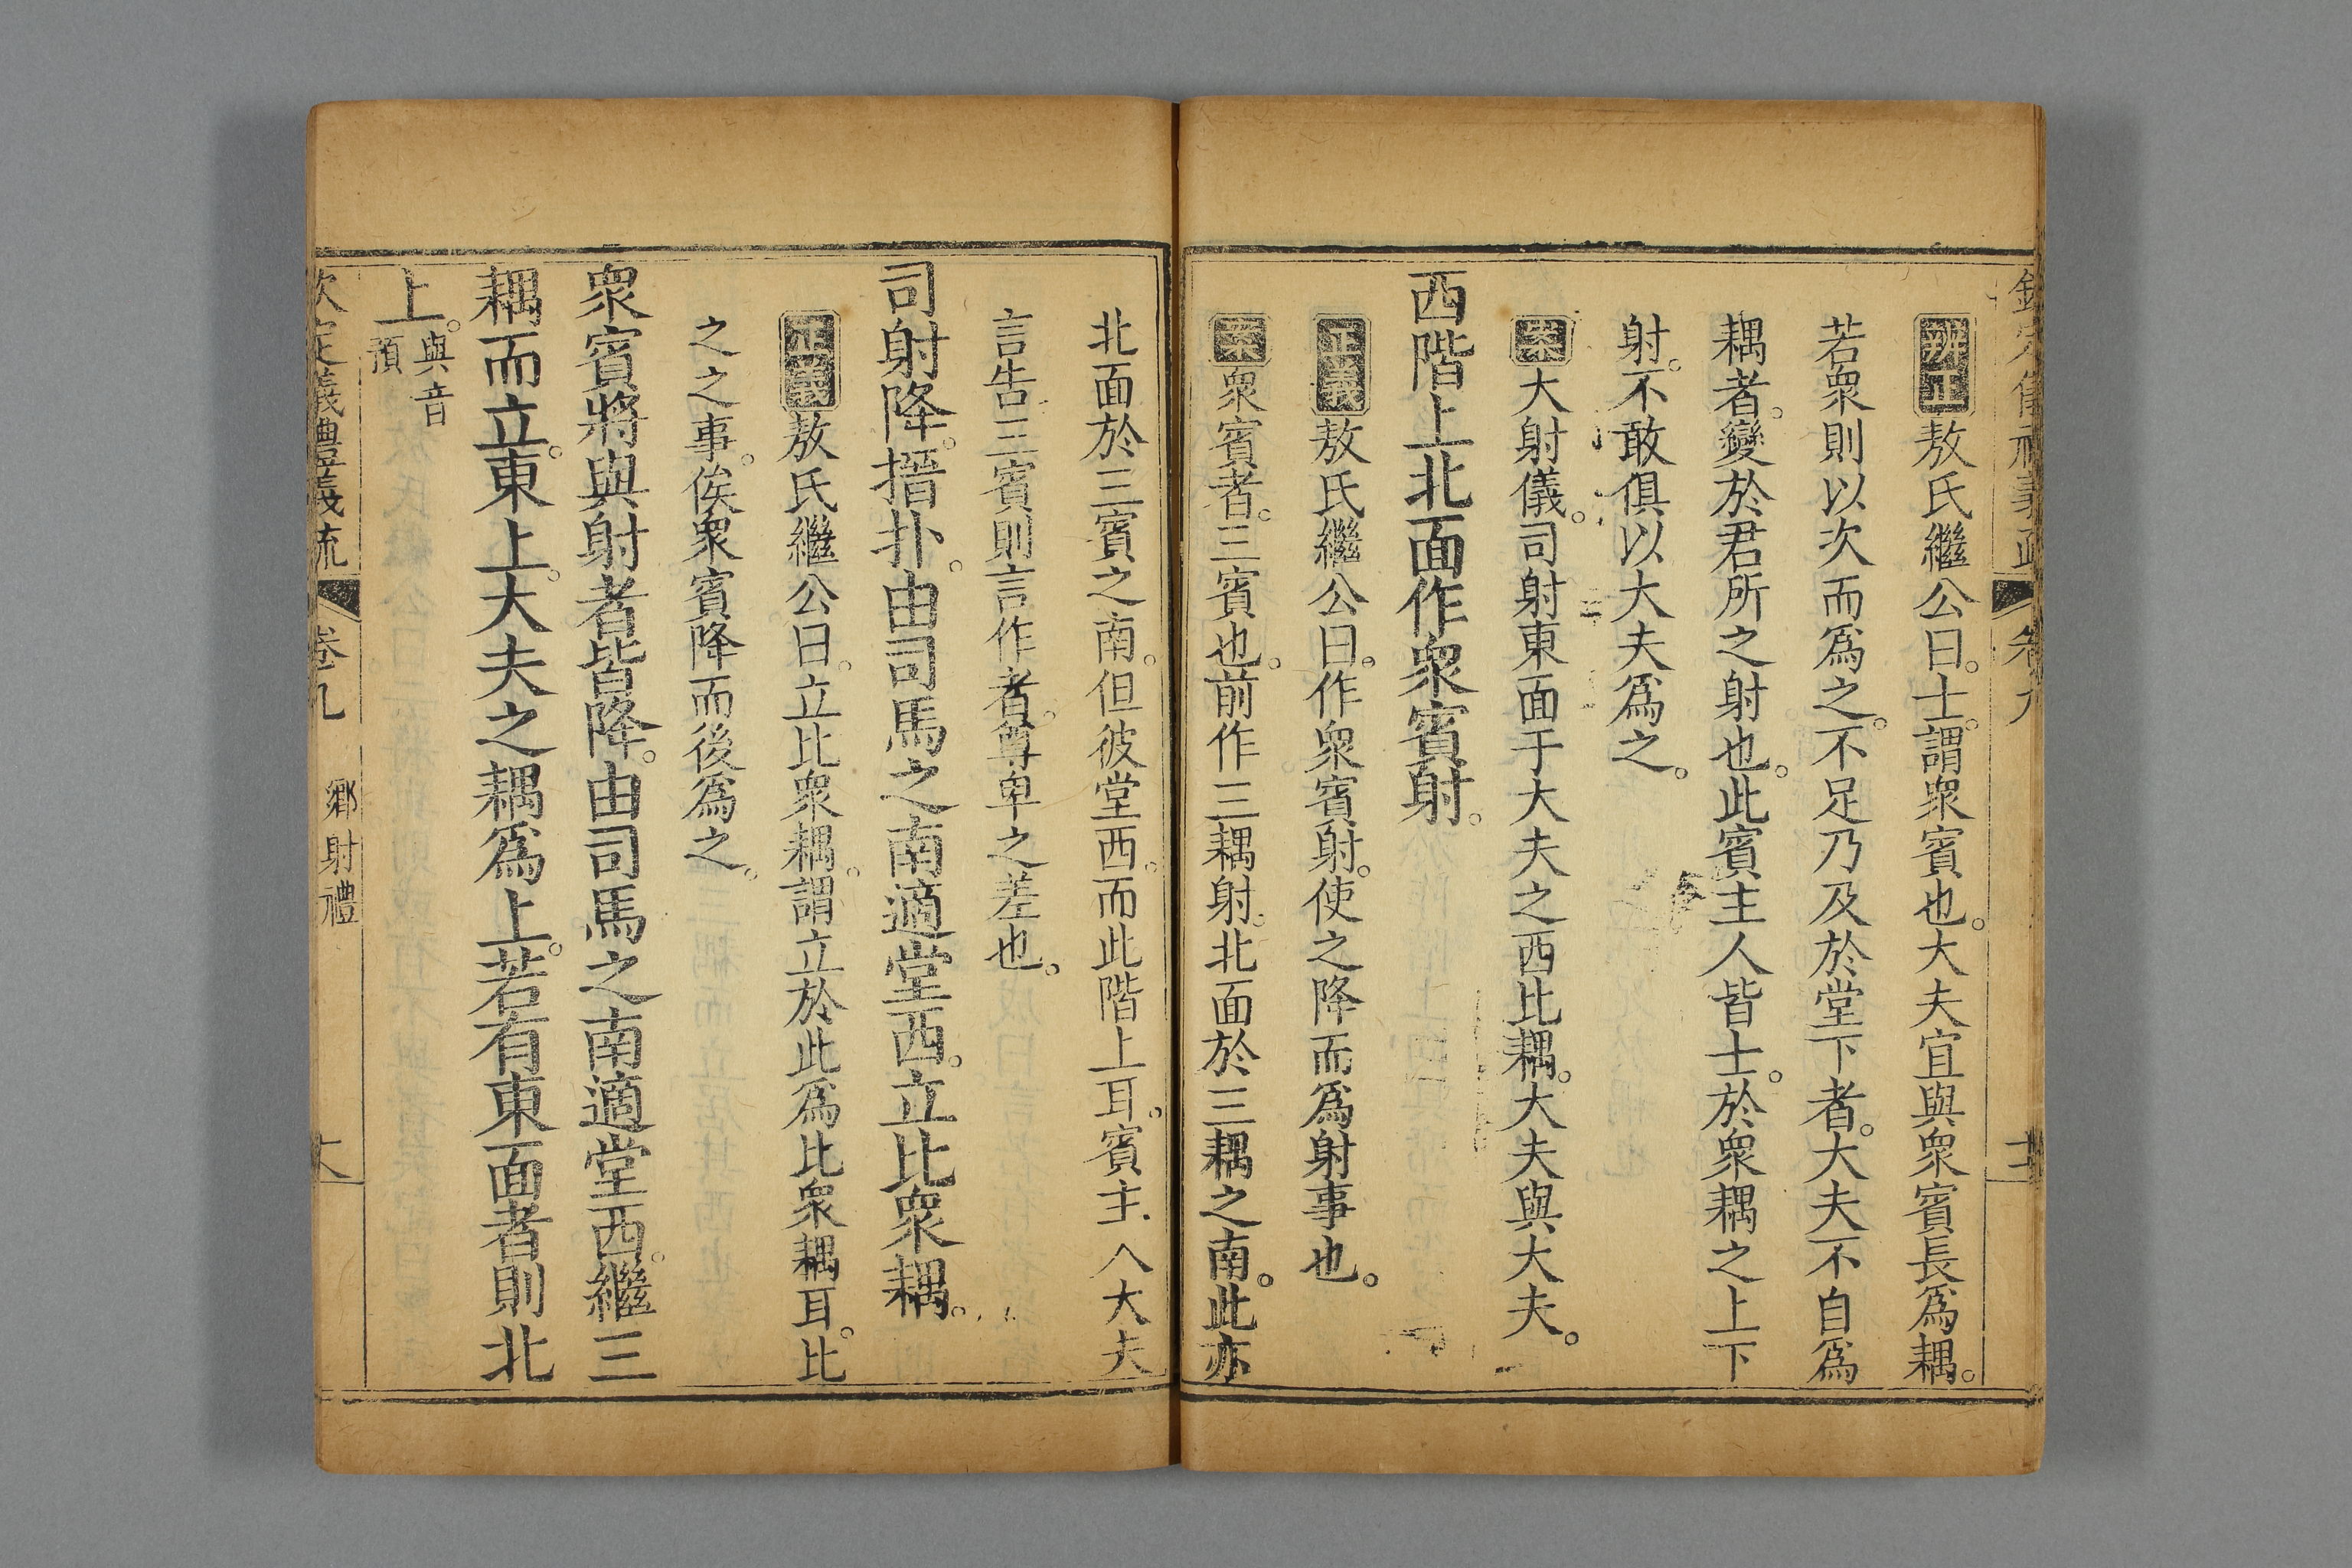 欽定儀禮義疏 卷九
辨正敖氏繼公曰。士。謂眾賓也。大夫宜與眾賓長爲耦。
若眾則以次而爲之。不足乃及於堂下者。大夫不自爲
耦者。變於君所之射也。此賓主人皆士。於眾耦之上下
射。不敢俱以大夫爲之。
案大射儀。司射東面于大夫之西比耦。大夫與大夫。
西階上北面作眾賓射。
正義敖氏繼公曰。作眾賓射。使之降而爲射事也。
案眾賓者。三賓也。前作三耦射。北面於三耦之南。此亦
北面於三賓之南。但彼堂西。而此階上耳。賓主人大夫
言告三賓則言作者。尊卑之差也。
司射降。搢扑。由司馬之南適堂西。立比眾耦。
正義敖氏繼公曰。立比眾耦。謂立於此爲比眾耦耳。比
之之事。俟眾賓降而後爲之。
眾賓將與射者皆降。由司馬之南適堂西。繼三
耦而立。東上。大夫之耦爲上。若有東面者則北
上。與音預
欽定義禮義疏 卷九 鄉射禮